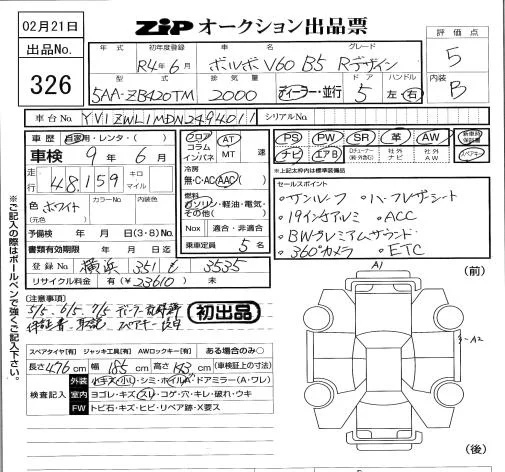 02月21日
ZiP オークション出品票
出品No.
326
年式 初年度登録 車名 グレード
R4年6月 ボルボV60 B5 Rデザイン
型式 排気量 ドア ハンドル
5AA-ZB420TM 2000 ディーラー・並行 5 左・右
評価点
5
内装
B
車台No. YV1ZWL1MDN2494011 シリアルNo.
車歴 自家用・レンタ・( )
車検 9年6月
走行 48,159 キロ マイル
色 ホワイト カラーNo. 内装色
(元色)
予備検 年 月 日(3・8)No.
書類有効期限 年 月 日迄
登録No 横浜 351 せ 3535
リサイクル料金 有(¥23610) 未
フロア コラム インパネ AT MT 速
冷房
無・C・AC・AAC
燃料
ガソリン・軽油・電気・
その他( )
Nox 適合・非適合
乗車定員 5名
PS PW SR 革 AW 新車時保証書
ナビ エアB Dチューナー(純・外含む) 社外ナビ 社外AW スペアキー
*上記太枠内は標準装備品
セールスポイント
・サンルーフ ・ハーフレザーシート
・19インチアルミ ・ACC
・BWプレミアムサウンド
・360°カメラ ・ETC
(注意事項)
初出品
スペアタイヤ[有] ジャッキ工具[有] AWロックキー[有] ある場合のみ〇
長さ476cm 幅185cm 高さ143cm (車検証上の寸法)
検査記入
外装 小キズ・小凹・シミ・ホイルキズ・ドアミラー(A・ワレ)
室内 ヨゴレ・キズ・スレ・コゲ・穴・キレ・破れ・ウキ
FW トビ石・キズ・ヒビ・リペア跡・X要ス
A1
(前)
(後)
※ご記入の際はボールペンで強くご記入下さい。